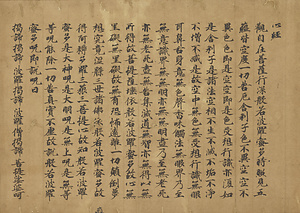 心經
觀自在菩薩行深般若波羅蜜多時照見五
蘊皆空度一切苦厄舍利子色不異空空不
異色色即是空空即是色受想行識亦復如
是舍利子是諸法空相不生不滅不垢不淨
不增不減是故空中無色無受想行識無眼
耳鼻舌身意無色聲香味觸法無眼界乃至
無意識界無無明亦無無明盡乃至無老死
亦無老死盡無苦集滅道無智亦無得以無
所得故菩提薩埵依般若波羅蜜多故心無
罣礙無罣礙故無有恐怖遠離一切顛倒夢
想究竟涅槃三世諸佛依般若波羅蜜多故
得阿耨多羅三藐三菩提故知般若波羅
蜜多是大神呪是大明呪是無上呪是無等
等呪能除一切苦真實不虛故說般若波羅
蜜多呪即說呪曰
揭諦揭諦 波羅揭諦 波羅僧揭諦 菩提娑婆訶